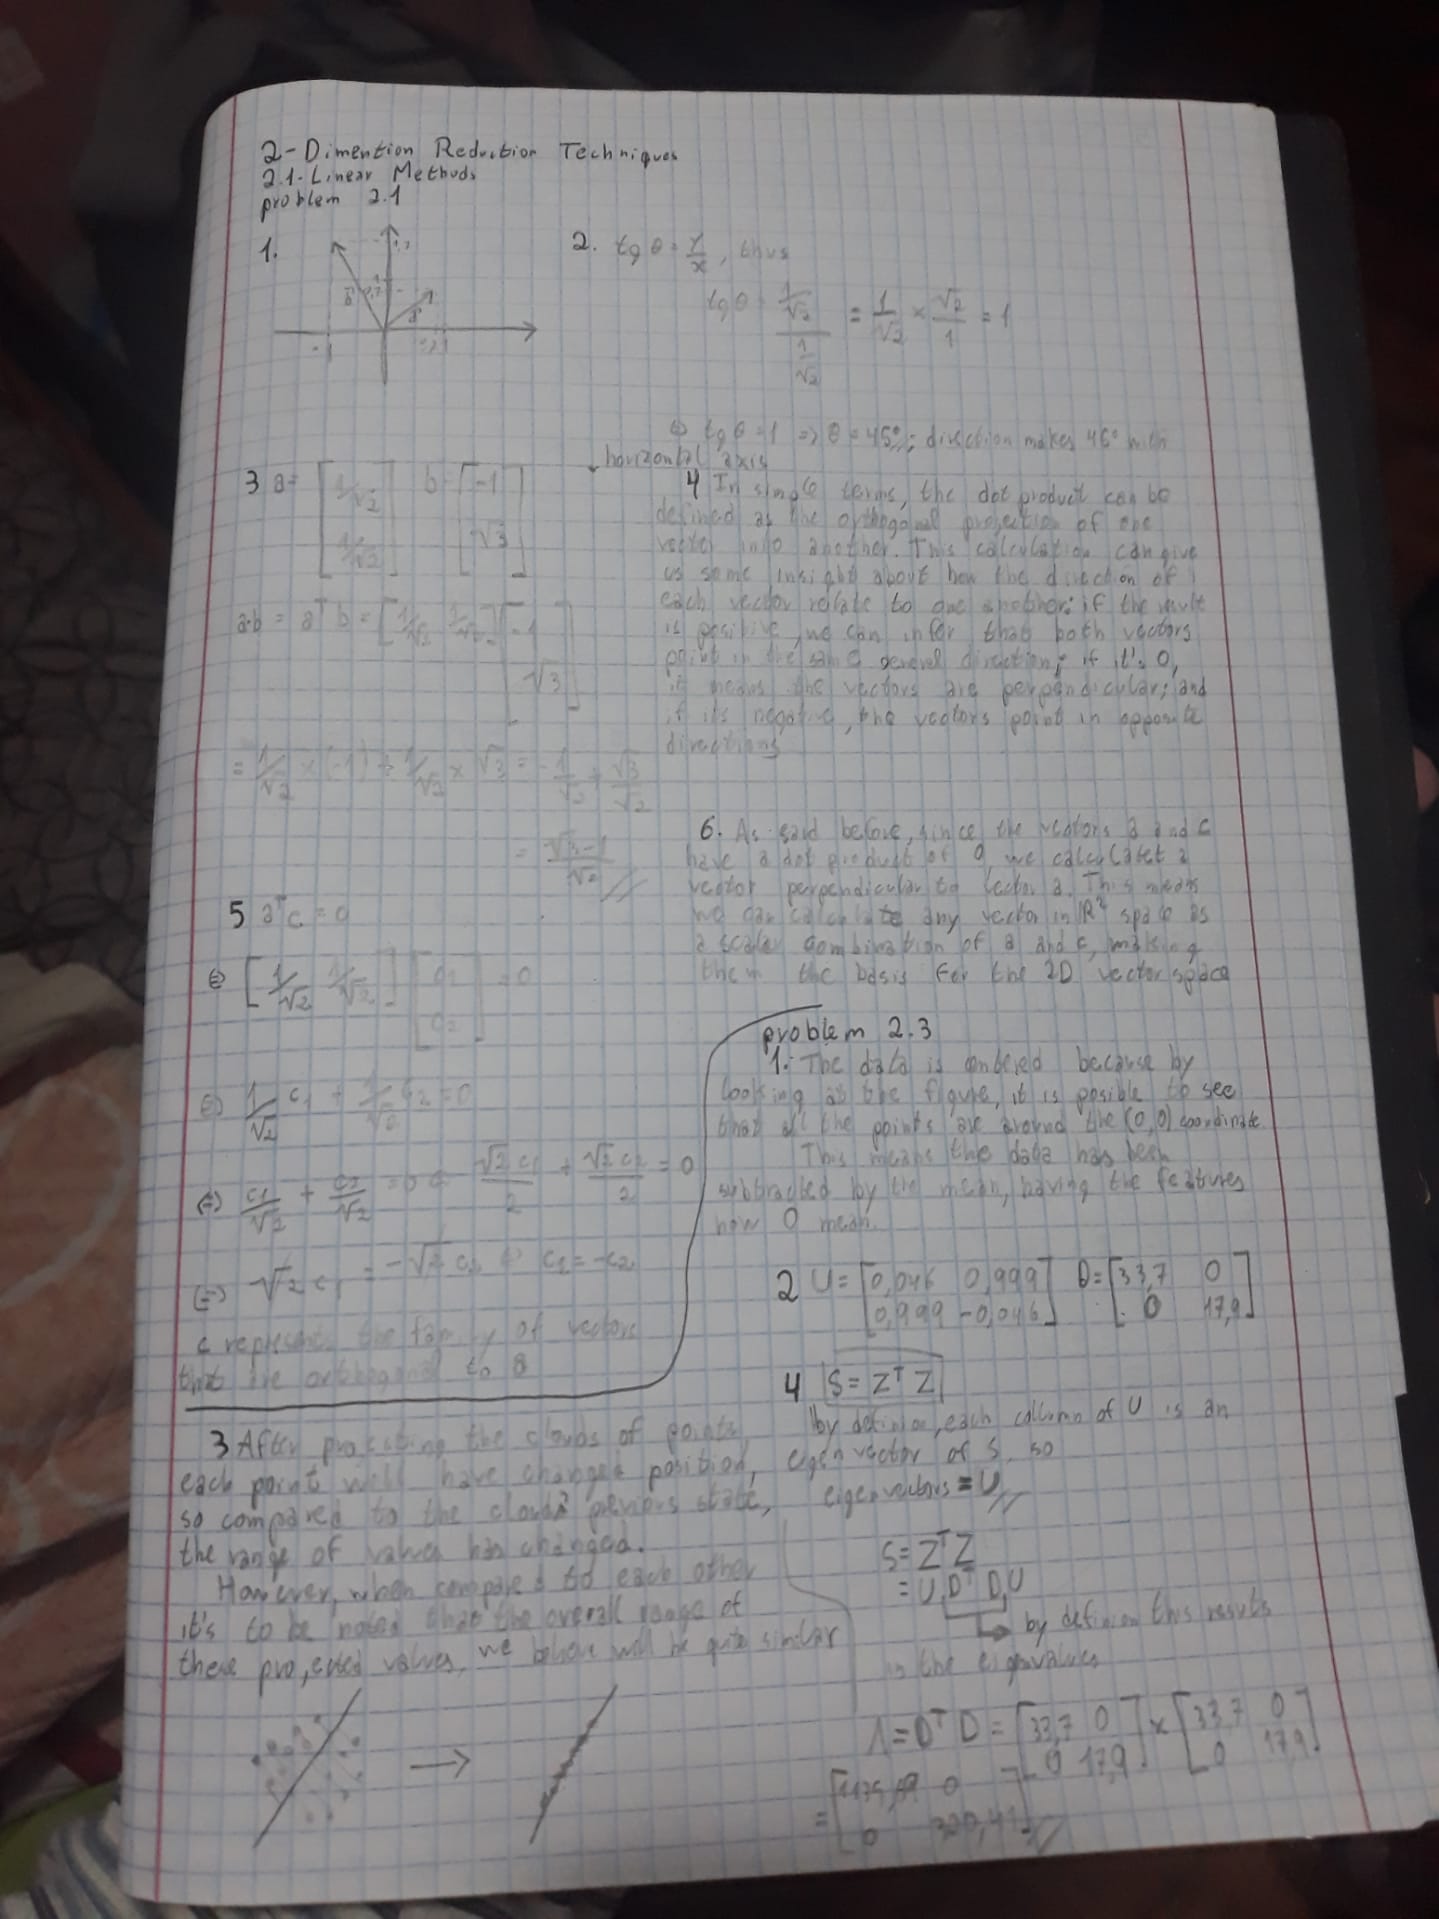 2-Dimention Reduction Techniques
2.1-Linear Methods
problem 2.1
1.
-1
2. tg θ = y/x, thus
tg θ = (1/√2)/(1/√2) = 1/√2 × √2/1 = 1
⇔ tg θ = 1 => θ = 45°; direction makes 45° with
horizontal axis
3 a = [1/√2 1/√2] b = [-1 √3]
a·b = aᵀ b = [1/√2 1/√2] [-1 √3]
= 1/√2 × (-1) + 1/√2 × √3 = -1/√2 + √3/√2
= (√3-1)/√2
4 In simple terms, the dot product can be
defined as the orthogonal projection of one
vector into another. This calculation can give
us some insight about how the direction of
each vector relate to one another: if the result
is positive, we can infer that both vectors
point in the same general direction; if it's 0,
it means the vectors are perpendicular; and
if it's negative, the vectors point in opposite
directions
5 aᵀc = 0
⇔ [1/√2 1/√2] [c1 c2] = 0
⇔ 1/√2 c1 + 1/√2 c2 = 0
⇔ c1/√2 + c2/√2 = 0 ⇔ √2 c1/2 + √2 c2/2 = 0
⇔ √2 c1 = -√2 c2 ⇔ c1 = -c2
c represents the family of vectors
that are orthogonal to a
6. As said before, since the vectors a and c
have a dot product of 0, we calculated a
vector perpendicular to vector a. This means
we can calculate any vector in ℝ² space as
a scalar combination of a and c, making
them the basis for the 2D vector space
problem 2.3
1. The data is centered because by
looking at the figure, it is posible to see
that all the points are around the (0,0) coordinate.
This means the data has been
subtracted by the mean, having the features
now 0 mean.
2 U = [0,046 0,999 0,999 -0,046] D = [33,7 0 0 17,9]
3 After projecting the clouds of points,
each point will have changed position,
so compared to the clouds previous state,
the range of values has changed.
However, when compared to each other
it's to be noted that the overall range of
these projected values, we believe will be quite similar
4 S = ZᵀZ
by definion, each collumn of U is an
eigenvector of S, so
eigenvectors = U
S = ZᵀZ
= U Dᵀ D U
by definion this results
in the eigenvalues
Λ = Dᵀ D = [33,7 0 0 17,9] × [33,7 0 0 17,9]
= [1135,69 0 0 320,41]